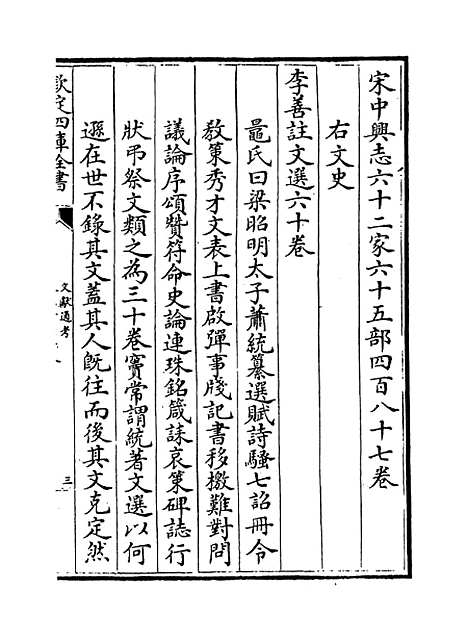 宋中興志六十二家六十五部四百八十七卷
右文史
李善註文選六十卷
鼂氏曰梁昭明太子蕭統纂選賦詩騷七詔冊令
敎策秀才文表上書啟彈事牋記書移檄難對問
議論序頌贊符命史論連珠銘箴誄哀策碑誌行
狀弔祭文類之為三十卷竇常謂統著文選以何
遜在世不錄其文蓋其人旣往而後其文克定然
欽定四庫全書
文獻通考
三